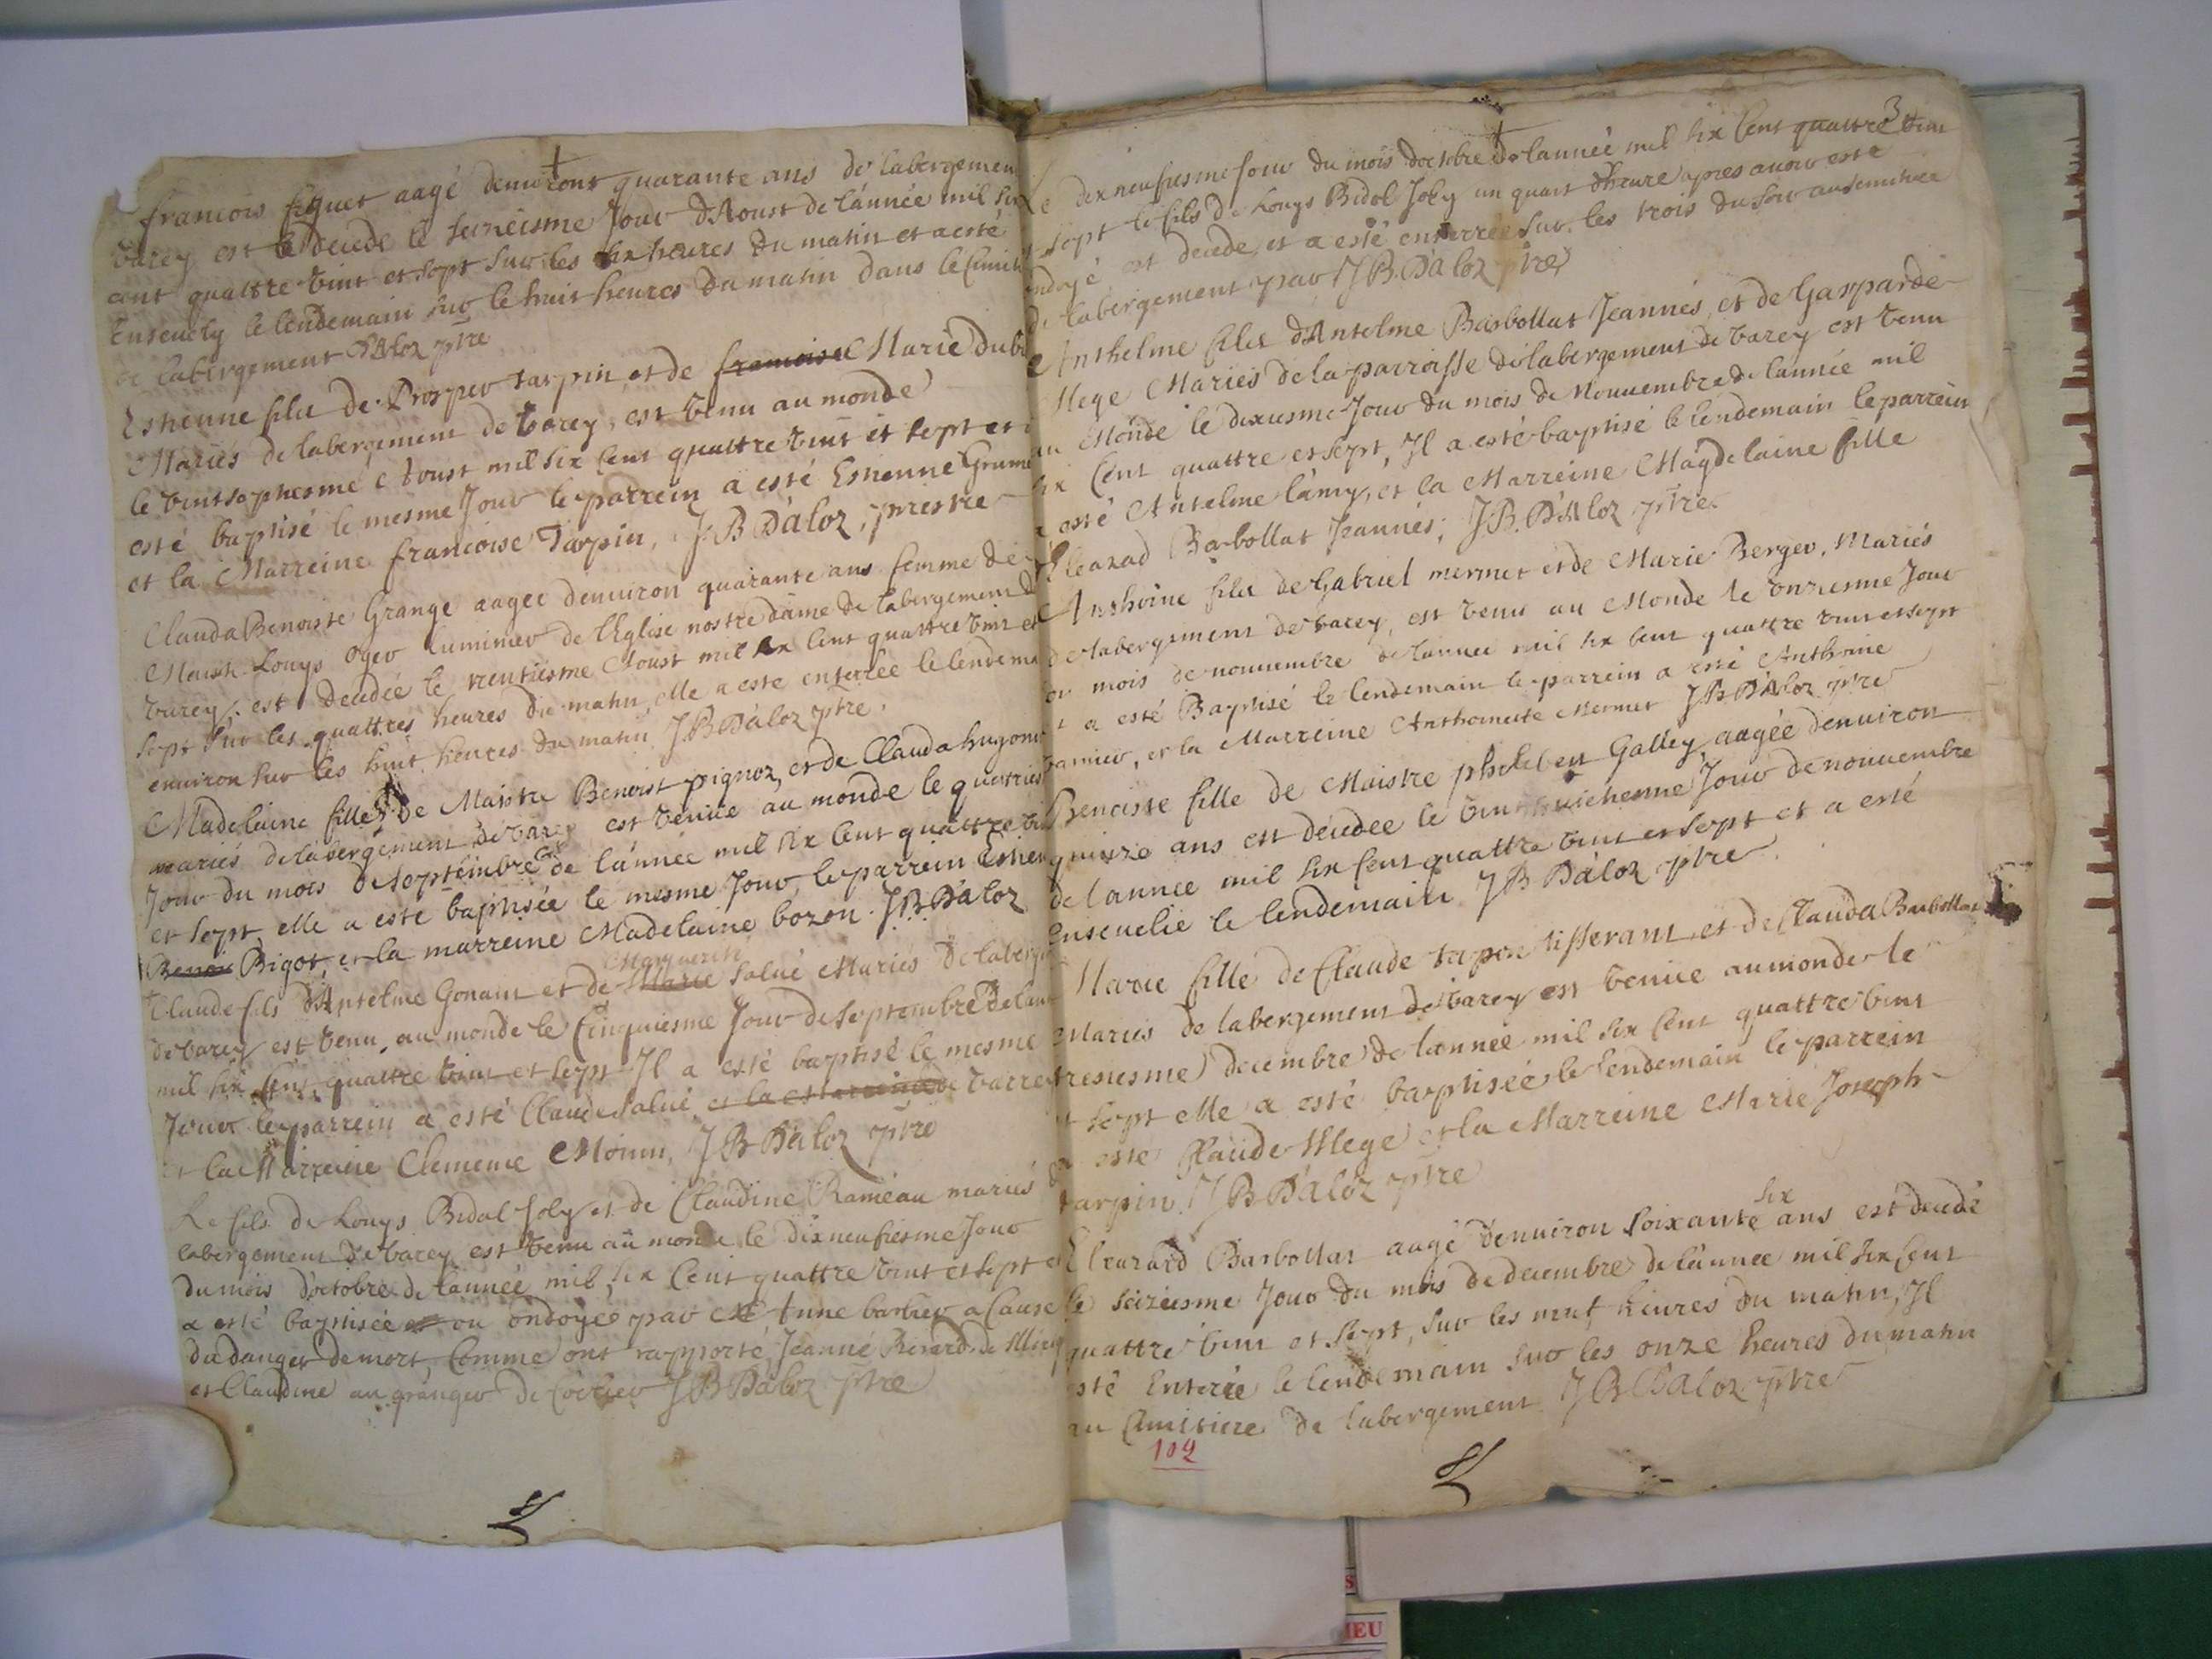 francois fiquet aagé denviront quarante ans de labergemen
varey est decede le sezieisme Jour dAoust de lánnée mil six
cent quattre vint et sept sur les six heures du matin et a esté
Enseuely le lendemain sur le huit heures du matin dans le Cimit
de labergement DAloz ptre
Estienne filz de Prosper tarpin et de francoise Marie dub
Mariés de labergement de varey, est venu au monde
le vintsephesme Aoust mil six cent quattre vint et sept et
esté baptisé le mesme Jour le parrein a esté Estienne Grume
et la Marreine francoise Tarpin, JB Dáloz, prestre
Clauda Benoiste Grange aagee denuiron quarante ans femme de
Maistre Louys Oger luminier de lEglise nostre dame de labergement d
varey est decedée le trentiesme Aoust mil six cent quattre vint et
sept sur les quattres heures du matin, elle a esté enterrée le lendema
environ sur les huit heures du matin JB Dáloz ptre.
Madelaine fille de Maistre Benoist pignoz, et de Clauda hugon
mariés de labergement de varey est venue au monde le quatries
Jour du mois de septembre de lánnée mil six cent quattre vi
et sept elle a esté baptisée le mesme Jour, le parrein Estien
Benoi Bigot, et la marreine Madelaine bozon. JB Dáloz
Marguerite
Claude fils dAntelme Gonam et de Marie salué Mariés de laberge
de varey est venu au monde le Cinquiesme Jour de septembre de lan
mil six cent quattre vint et sept Il a esté baptisé le mesme
Jour le parrein a esté Claude salué et la Marreine de varre
et la Marreine Clemence Monin, JB Dáloz ptre
Le fils de Louys Bidal Joly et de Claudine Rameau mariés d
labergement de varey est venu au monde le dixneufiesme Jour
du mois doctobre de lannée mil six cent quattre vint et sept et
a esté baptisée et ou ondoyée par Anne barbier a Cause
du danger de mort, Comme ont rapporté Jeanne Berard de
et Claudine au granger de JB Dáloz ptre
3
Le dixneufiesme Jour du mois doctobre de lannée mil six Cent quattre vint
et sept le fils de Louys Bidol Joly un quart dheure apres auoir esté
ondoyé est decede, et a esté enterrée sur les trois du soir au semitiere
de labergement par JB. Dáloz ptre
Anthelme filz dAntelme Barbollat Jeannés, et de Gasparde
Mege Mariés de la parroisse de labergement de varey est venu
au Monde le dixiesme Jour du mois de Nouuembre de lannée mil
six Cent quattre et sept, Il a esté baptisé le lendemain le parrein
a esté Antelme lámy, et la Marreine Magdelaine fille
Eleazad Barbollat Jeannés, JB. DAloz ptre
Anthoine filz de Gabriel mermet et de Marie Berger, Mariés
de labergement de varey, est venu au Monde le vnziesme Jour
du mois de nouuembre de lannee mil six cent quattre vint et sept
et a esté Baptisé le lendemain le parrein a esté Anthoine
garnier, et la Marreine Anthoinette Mermet JB DAloz ptre
Benoiste fille de Maistre philibert Galley aagée denuiron
quinze ans est decedee le vint huichesme Jour de nouuembre
de lannee mil six cent quattre vint et sept et a esté
Enseuelie le lendemain JB Dáloz ptre
Marie fille de Claude tapon tisserant, et de Clauda Barbollat
Mariés de labergement de varey est venue au monde le
tresiesme decembre de lannée mil six Cent quattre vint
et sept elle a esté baptisée le lendemain le parrein
a esté Claude Mege et la Marreine Marie Joseph
tarpin. JB Dáloz ptre
six
Eleazard Barbollat aagé denuiron soixante ans est decedé
le seziesme Jour du mois de decembre de lánnee mil six cent
quattre vint et sept, sur les neuf heures du matin, Il
esté Enterée le lendemain sur les onze heures du matin
au Cimitiere de labergement JB DAloz ptre
102
IEU